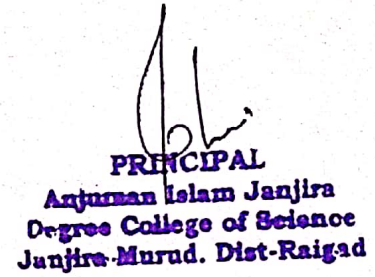 PRINCIPAL
Anjuman Islam Janjira
Degree College of Science
Janjira-Murud. Dist-Raigad